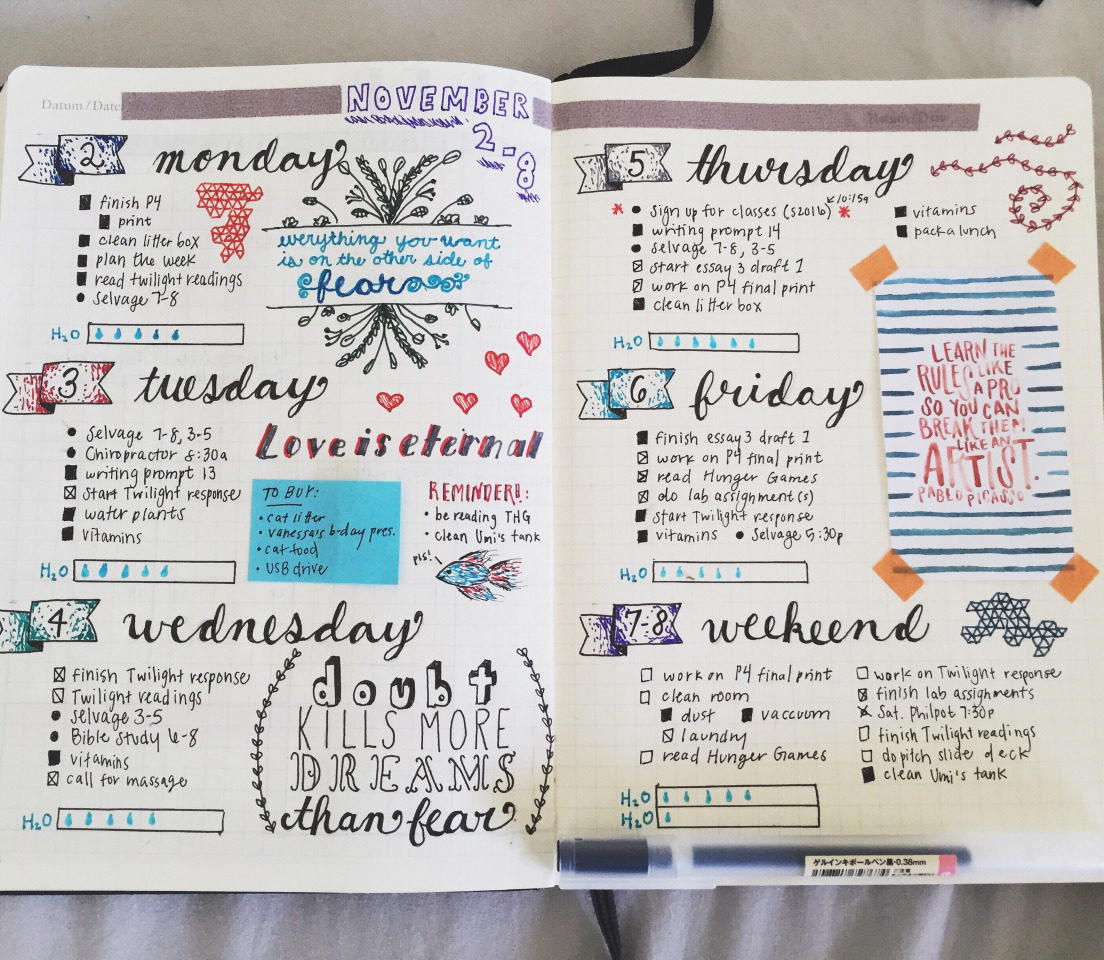 Datum / Date:
NOVEMBER
2-8
2 monday
finish P4
print
clean litter box
plan the week
read twilight readings
Selvage 7-8
H₂O
everything you want
is on the other side of
fear
3 tuesday
Selvage 7-8, 3-5
Chiropractor 8:30a
writing prompt 13
start Twilight response
water plants
vitamins
H₂O
Love is eternal
TO BUY:
• cat litter
• vanessa's b-day pres.
• cat food
• USB drive
REMINDER!!:
• be reading THG
• clean Umi's tank
pls!
4 wednesday
finish Twilight response
Twilight readings
Selvage 3-5
Bible Study 6-8
vitamins
call for massage
H₂O
doubt
KILLS MORE
DREAMS
than fear
Datum / Date:
5 thursday
* Sign up for classes (S2016) * 10:15a
writing prompt 14
Selvage 7-8, 3-5
start essay 3 draft 1
work on P4 final print
clean litter box
vitamins
pack a lunch
H₂O
6 friday
finish essay 3 draft 1
work on P4 final print
read Hunger Games
do lab assignment(s)
start Twilight response
vitamins • Selvage 5:30p
H₂O
LEARN THE
RULES LIKE
A PRO
SO YOU CAN
BREAK THEM
LIKE AN
ARTIST.
PABLO PICASSO
7-8 weekend
work on P4 final print
clean room
dust vaccuum
laundry
read Hunger Games
work on Twilight response
finish lab assignments
Sat. Philpot 7:30p
finish Twilight readings
do pitch slide deck
clean Umi's tank
H₂O
H₂O
ゲルインキボールペン黒・0.38mm